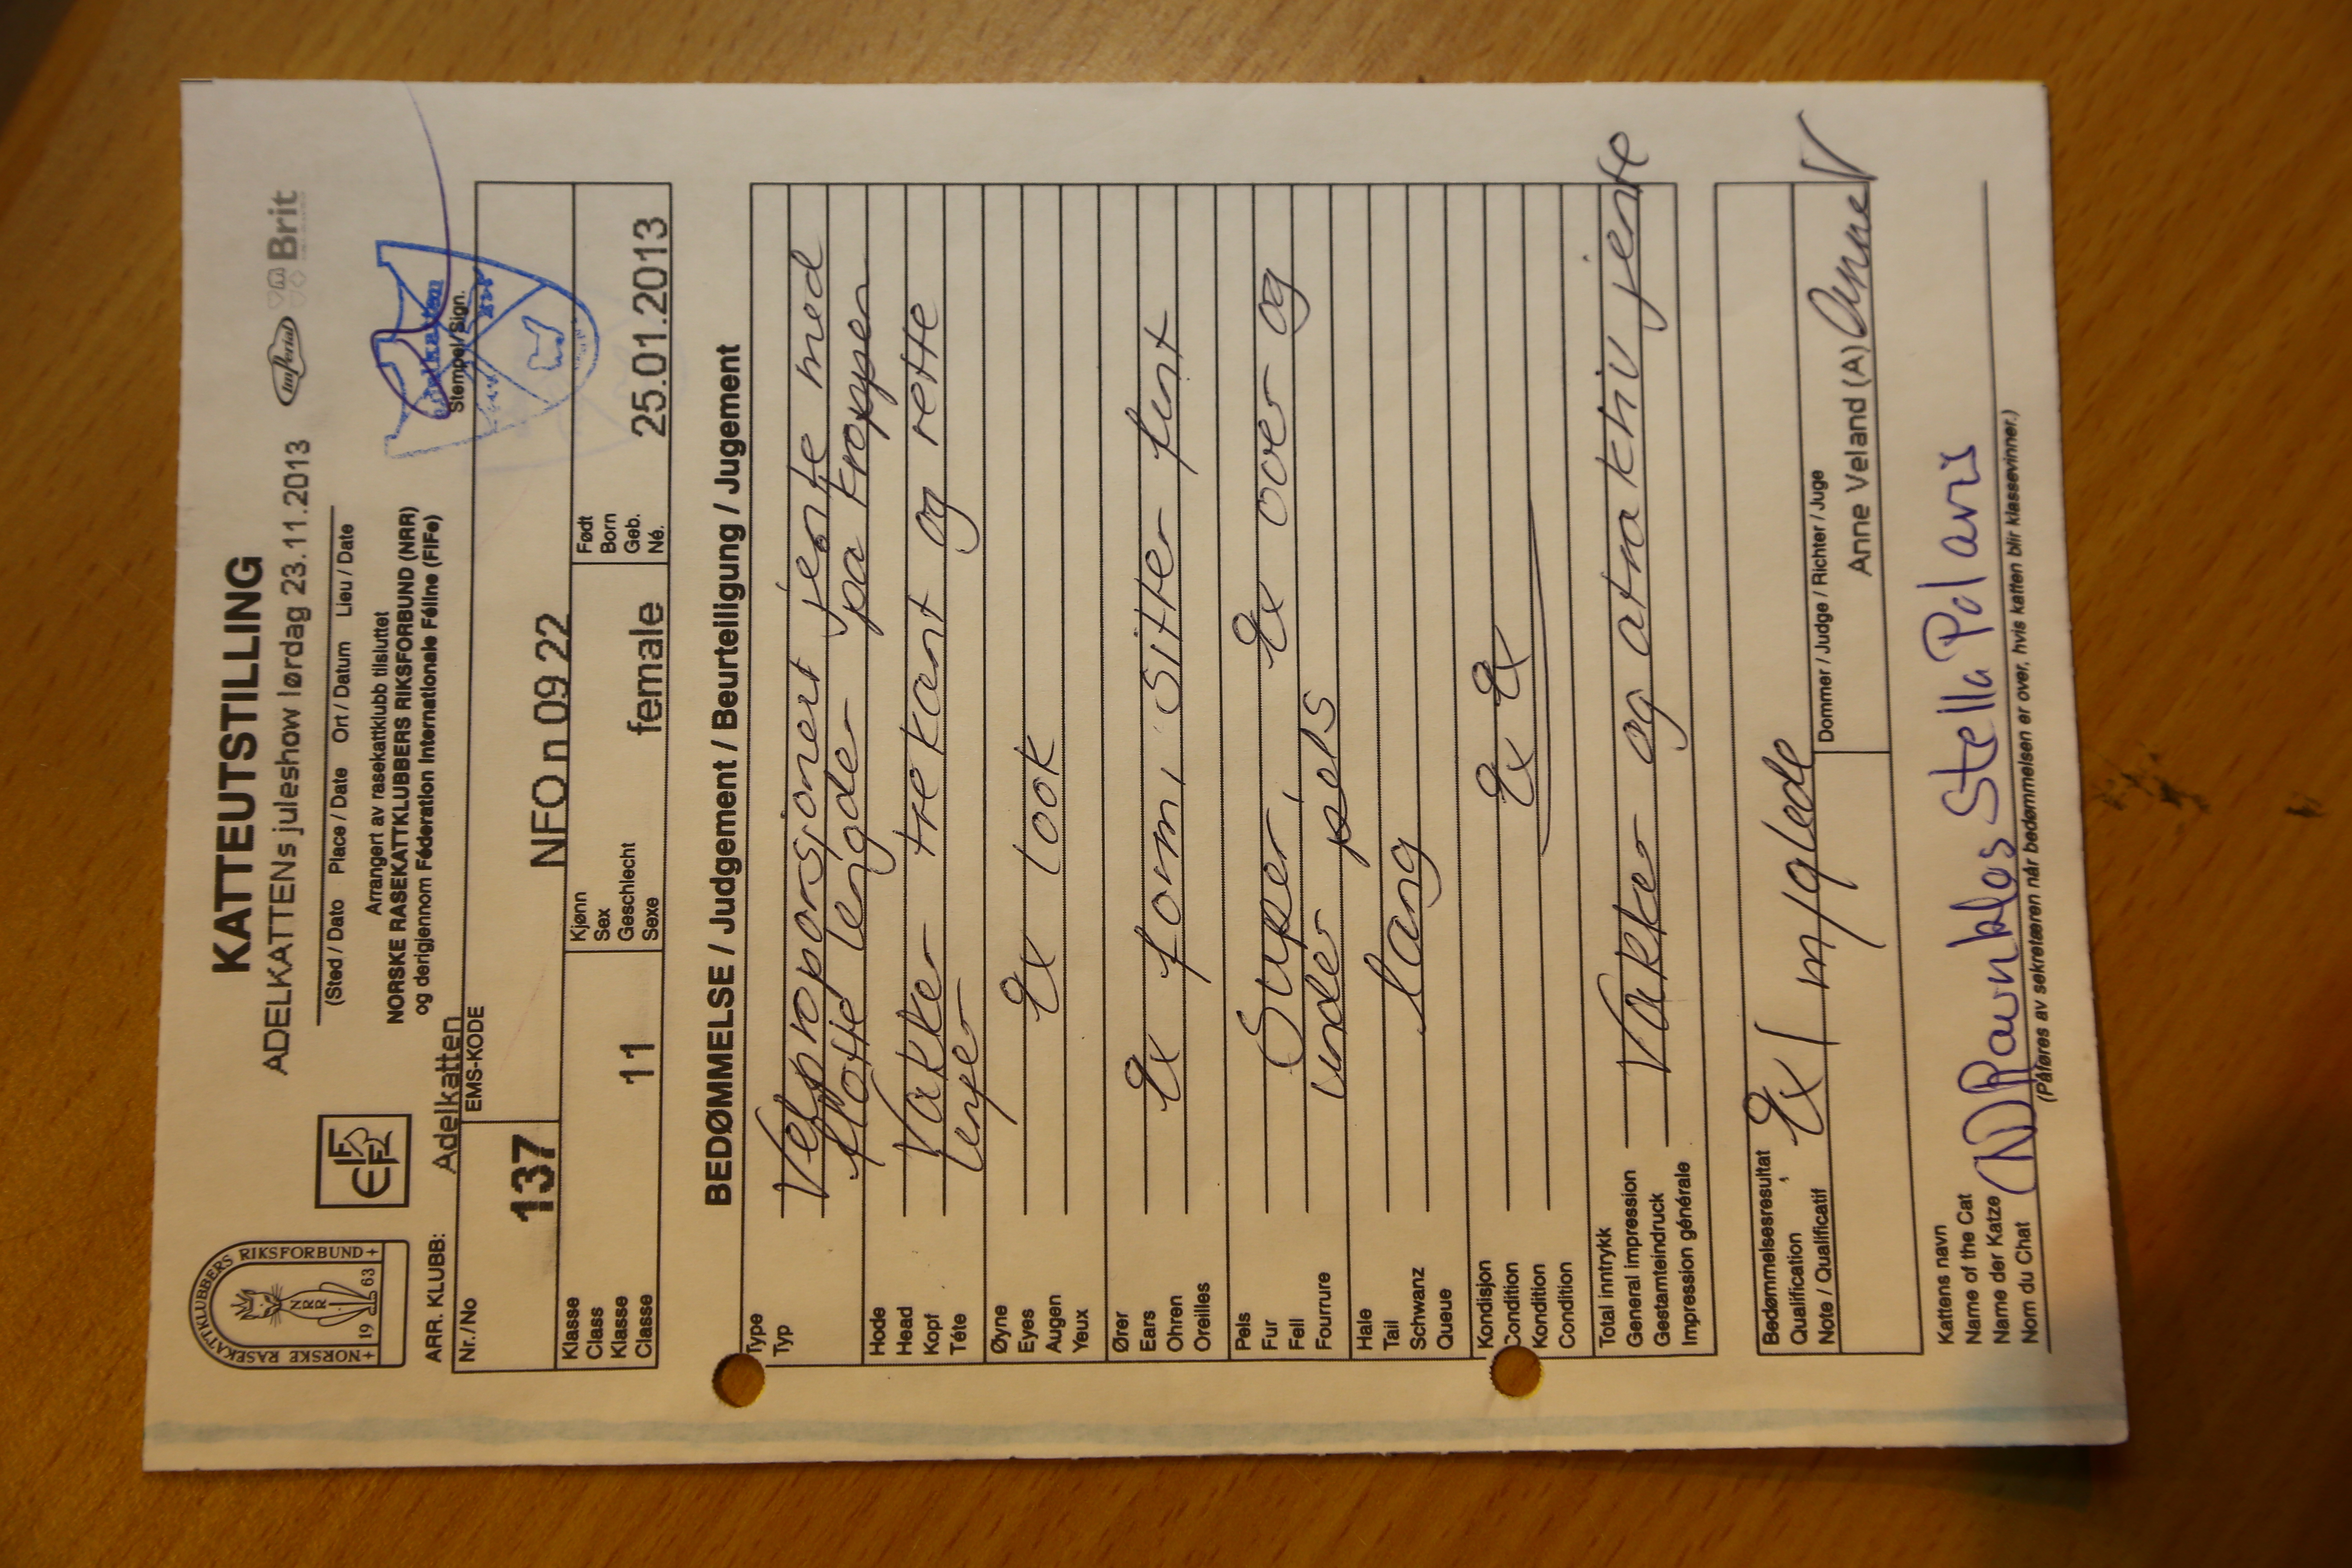 KATTEUTSTILLING
ADELKATTENs juleshow lørdag 23.11.2013
Imperial
Brit
(Sted / Dato Place / Date Ort / Datum Lieu / Date
Arrangert av rasekattklubb tilsluttet
NORSKE RASEKATTKLUBBERS RIKSFORBUND (NRR)
og derigjennom Féderation Internationale Féline (FIFe)
+NORSKE RASEKATTKLUBBERS RIKSFORBUND+
NRR
19 63
FIFe
Stempel/Sign.
ARR. KLUBB: Adelkatten
Nr./No 137
EMS-KODE NFO n 09 22
Klasse
Class
Klasse
Classe
11
Kjønn
Sex
Geschlecht
Sexe
female
Født
Born
Geb.
Né.
25.01.2013
BEDØMMELSE / Judgement / Beurteiligung / Jugement
Type
Typ
Velproporsjonert jente med
flotte lengder på kroppen
Hode
Head
Kopf
Téte
Vakker trekant og rette
Øyne
Eyes
Augen
Yeux
Ex look
Ører
Ears
Ohren
Oreilles
Ex form, sitter fint
Pels
Fur
Fell
Fourrure
Super, Ex over og
under pels
Hale
Tail
Schwanz
Queue
lang
Kondisjon
Condition
Kondition
Condition
Ex Ex
Total inntrykk
General impression
Gestamteindruck
Impression générale
Vakker og atraktiv jente
Bedømmelsesresultat
Qualification
Note / Qualificatif
Ex 1 m/glede
Dommer / Judge / Richter / Juge
Anne Veland (A) Anne V
Kattens navn
Name of the Cat
Name der Katze
Nom du Chat
(N) Stella Polaris
(Påføres av sekretæren når bedømmelsen er over, hvis katten blir klassevinner.)